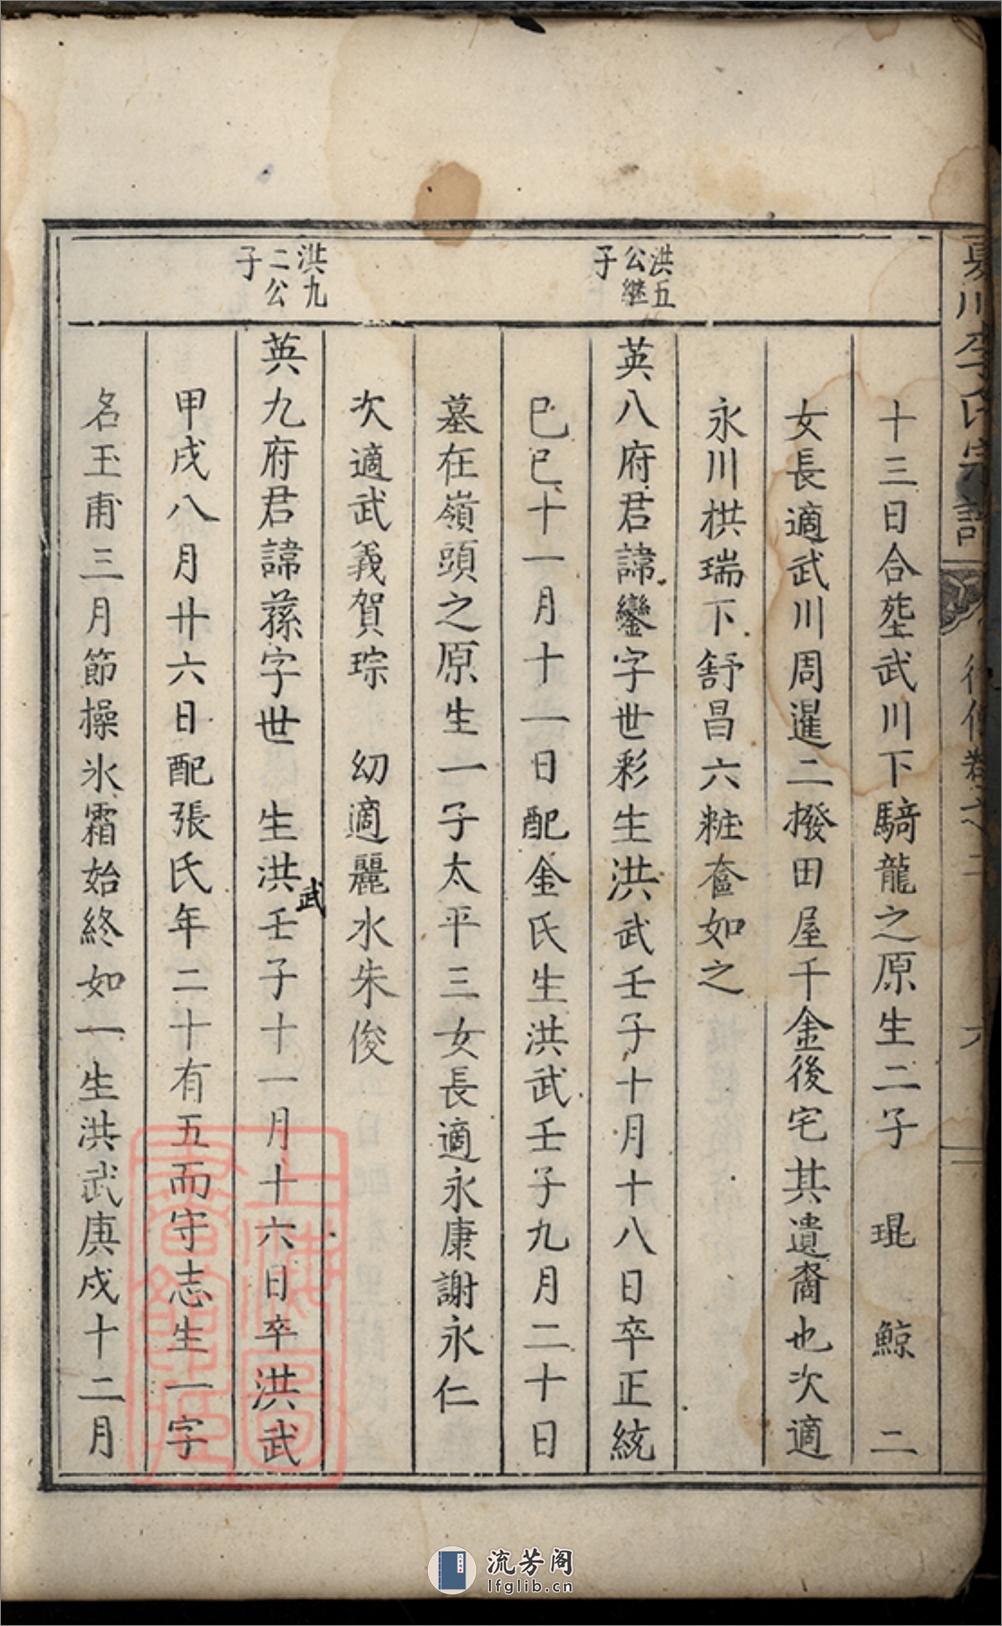 十三日合塟武川下騎龍之原生二子 琨 鯨 二
女長適武川周暹二撥田屋千金後宅其遺裔也次適
永川栱瑞下舒昌六粧奩如之
洪五公繼子
英八府君諱鑾字世彩生洪武壬子十月十八日卒正統
巳巳十一月十一日配金氏生洪武壬子九月二十日
墓在嶺頭之原生一子太平三女長適永康謝永仁
次適武義賀琮 幼適麗水朱俊
洪九二公子
英九府君諱蓀字世 生洪武壬子十一月十六日卒洪武
甲戌八月廿六日配張氏年二十有五而守志生一字
名玉甫三月節操氷霜始終如一生洪武庚戌十二月
川李氏宗譜
行傳卷之二
六
上海圖書館藏
流芳阁
lfglib.cn